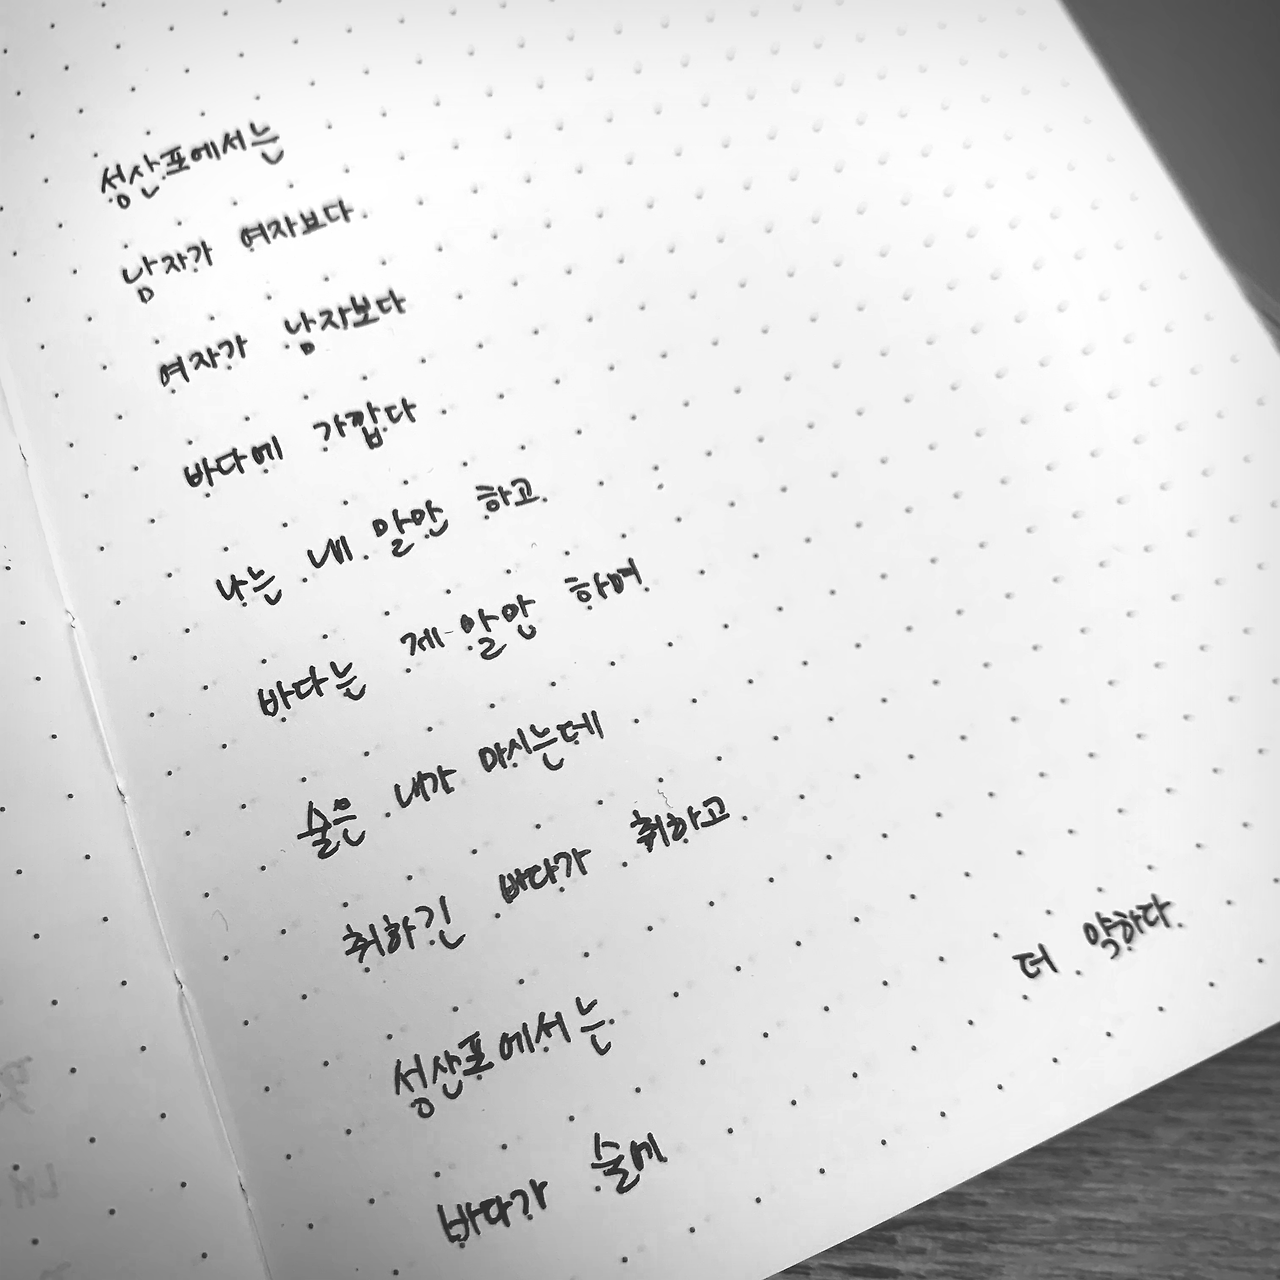 성산포에서는
남자가 여자보다
여자가 남자보다
바다에 가깝다
나는 내 말만 하고
바다는 제 말만 하며
술은 내가 마시는데
취하긴 바다가 취하고
성산포에서는
바다가 술에
더 약하다